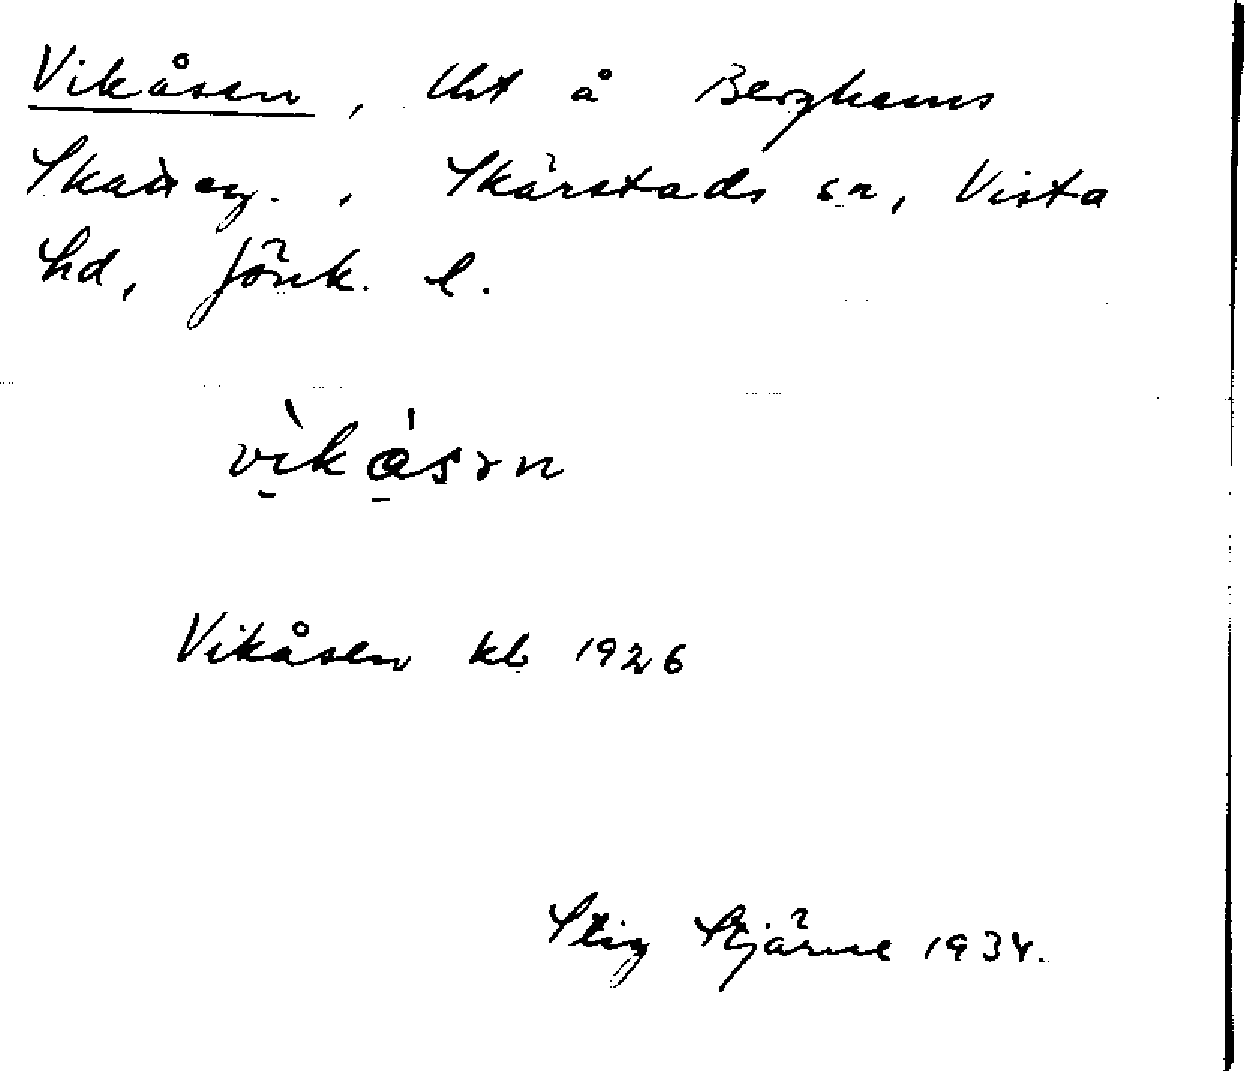 Vikåsen, lht å Berghems
Skatteg., Skärstads sn, Vista
hd, Jönk. l.
vìkåsən
Vikåsen kb 1926
Stig Stjärne 1934.